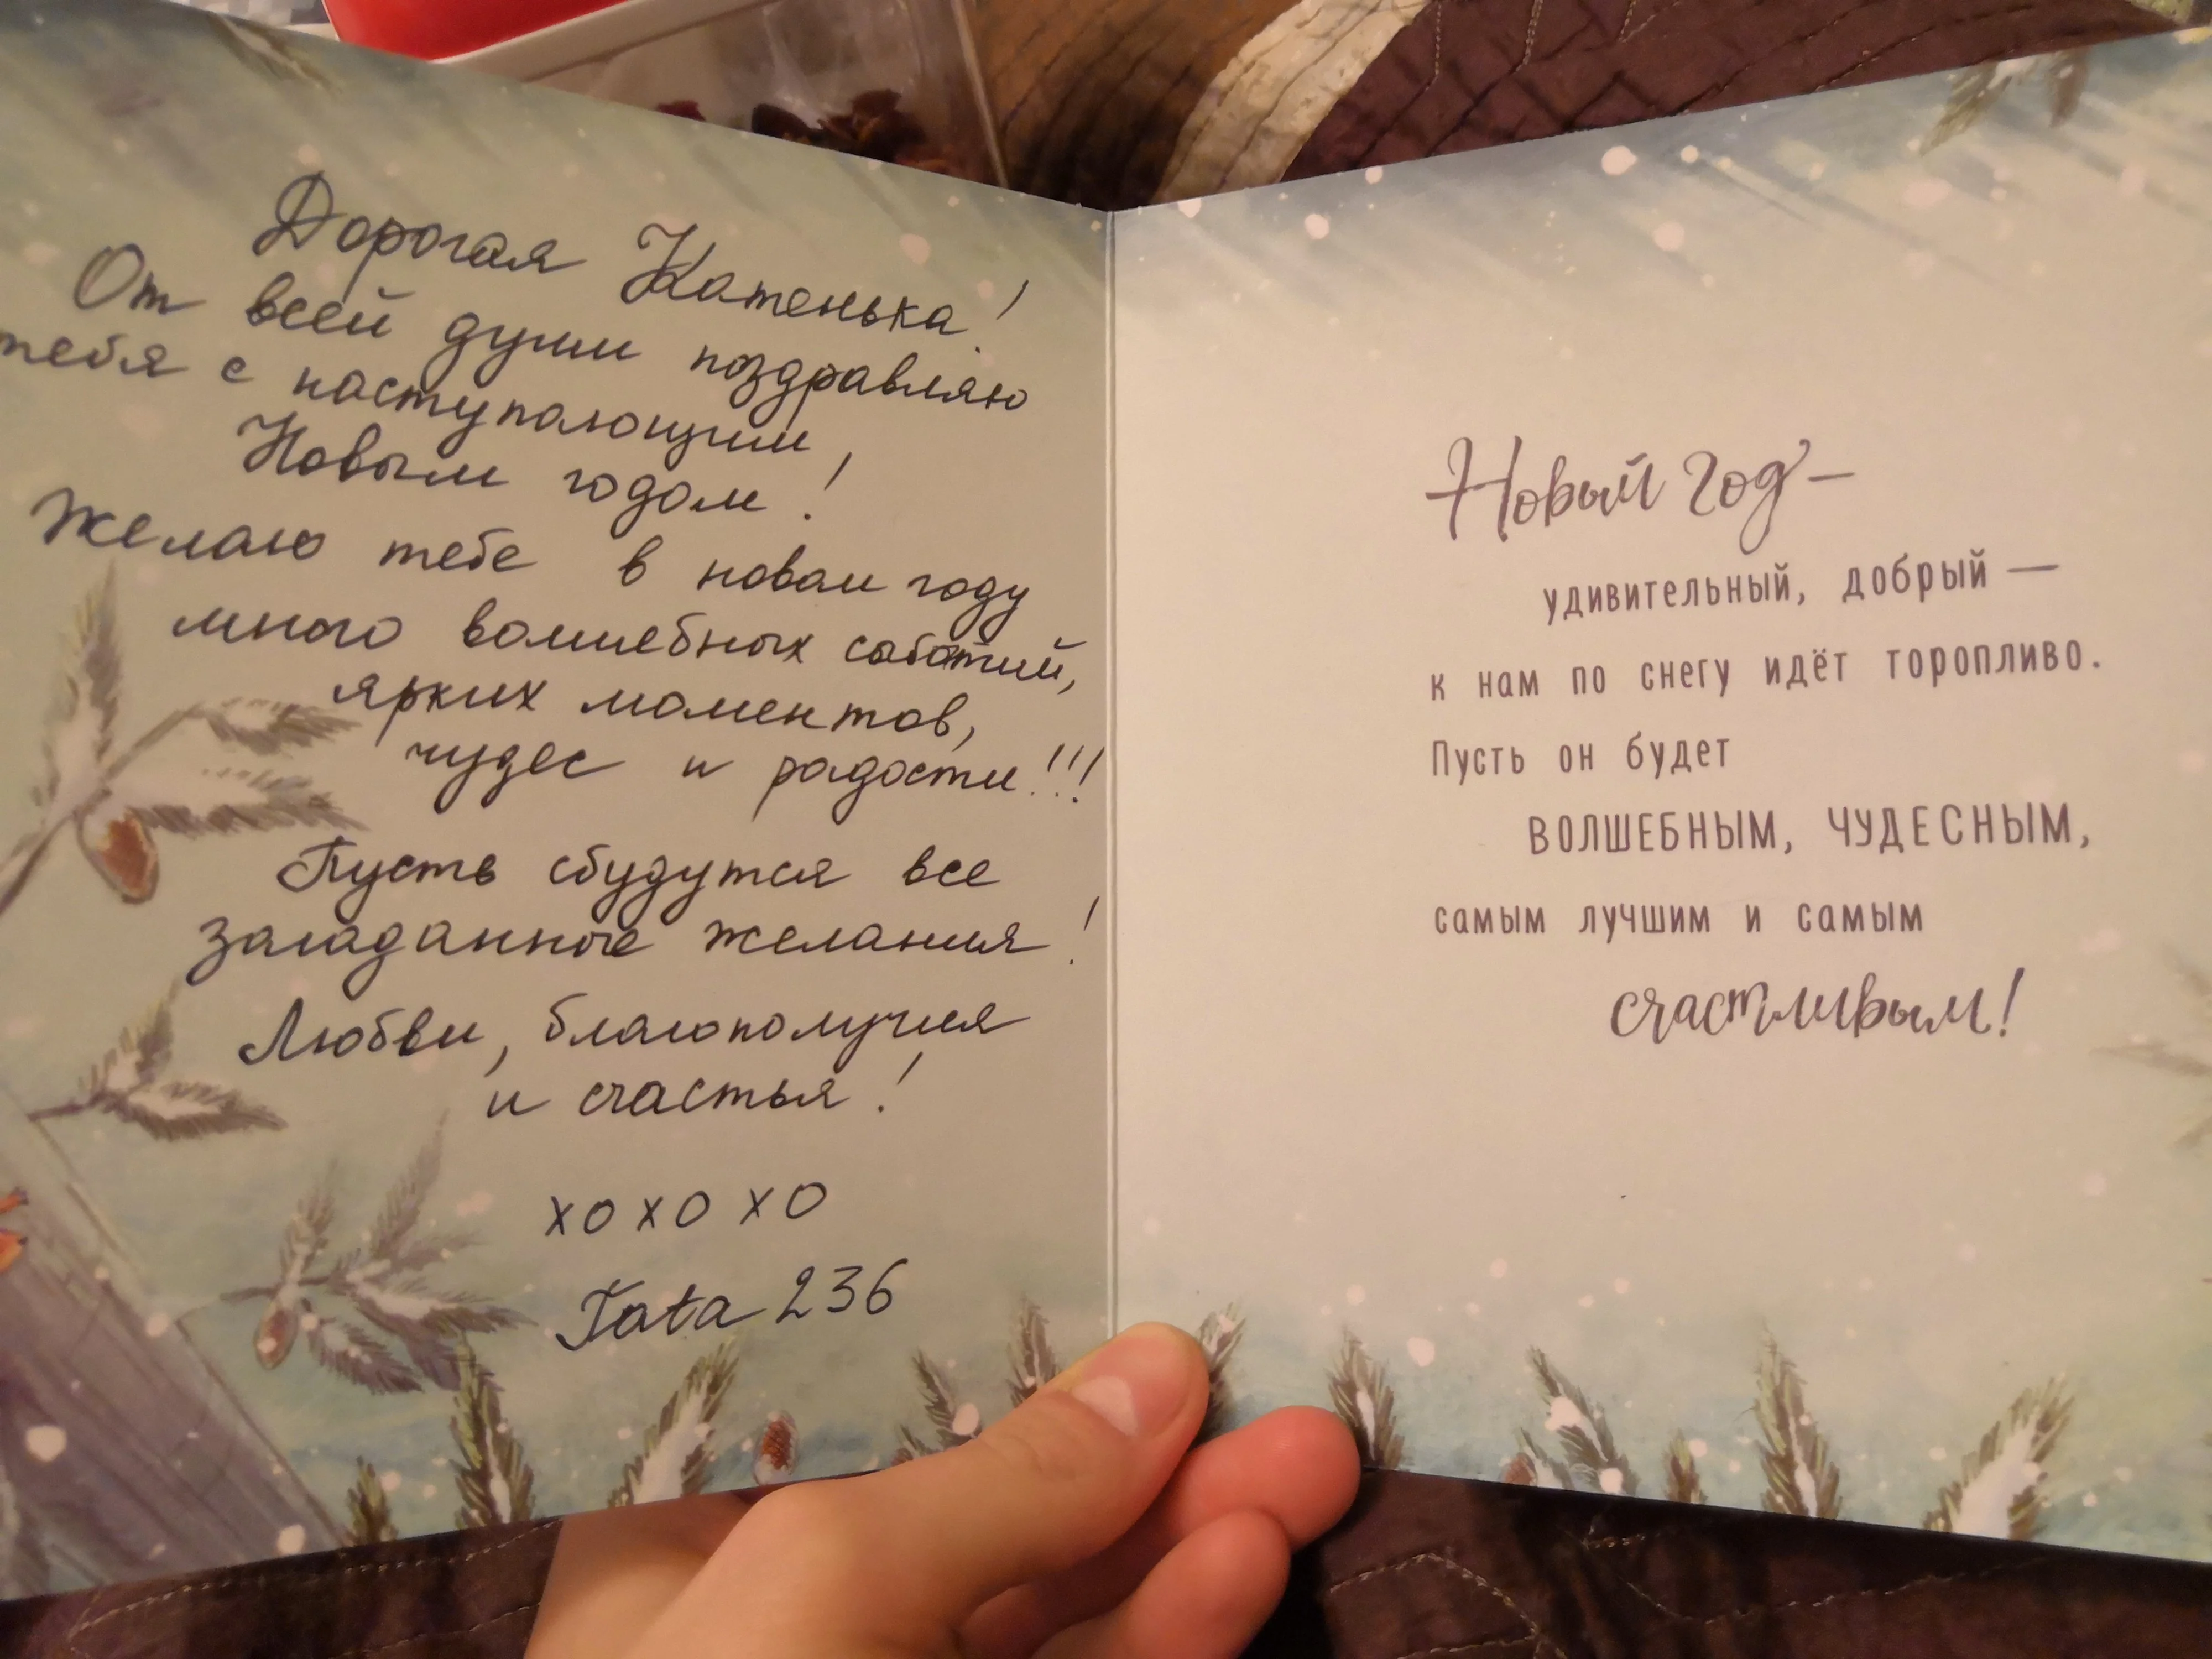 Дорогая Катенька!
От всей души поздравляю
тебя с наступающим
Новым годом!
Желаю тебе в новом году
много волшебных событий,
ярких моментов,
чудес и радости!!!
Пусть сбудутся все
загаданные желания!
Любви, благополучия
и счастья!
xo xo xo
Tata 236
Новый год –
удивительный, добрый —
к нам по снегу идёт торопливо.
Пусть он будет
ВОЛШЕБНЫМ, ЧУДЕСНЫМ,
самым лучшим и самым
счастливым!